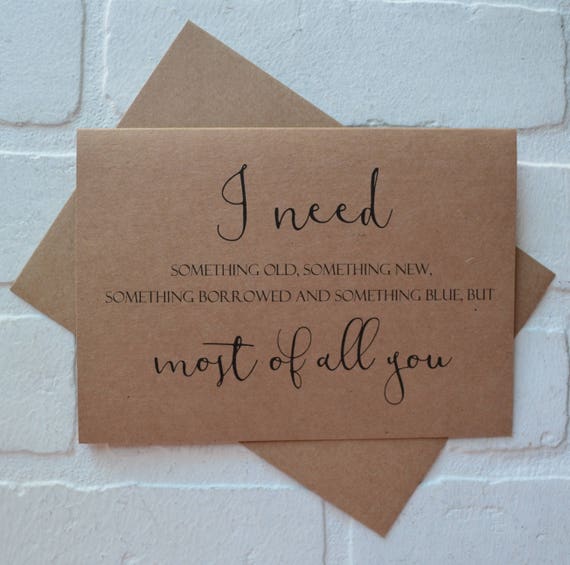 I need
SOMETHING OLD, SOMETHING NEW,
SOMETHING BORROWED AND SOMETHING BLUE, BUT
most of all you